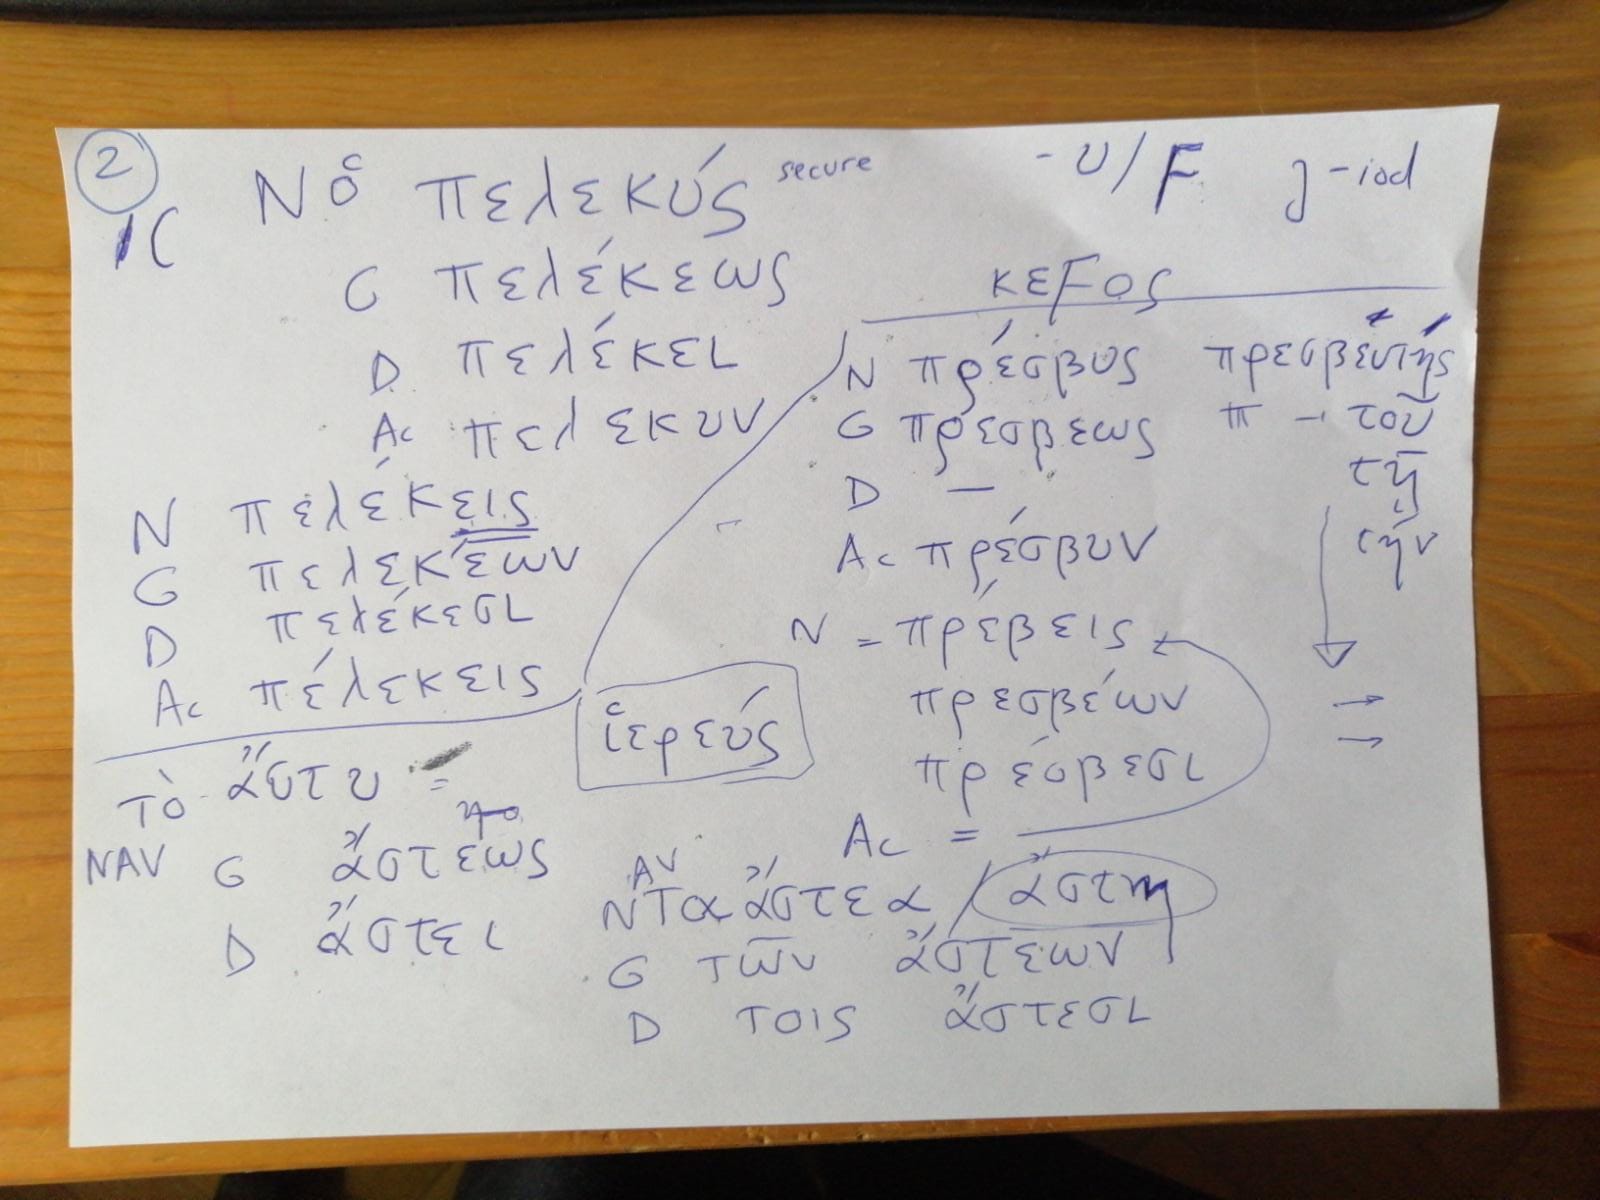 2
1C N ὁ πελεκύς secure
-υ/F j-iod
G πελέκεως
D πελέκει
Ac πέλεκυν
N πελέκεις
G πελεκέων
D πελέκεσι
Ac πελέκεις
κεFος
N πρέσβυς πρεσβευτής
G πρέσβεως π - του
D — τῇ
Ac πρέσβυν τήν
N = πρέσβεις
πρεσβέων
πρέσβεσι
Ac =
ἱερεύς
τὸ ἄστυ =
NAV G ἄστεως
D ἄστει
AV
N Τα ἄστεα / ἄστη
G τῶν ἄστεων
D τοις ἄστεσι